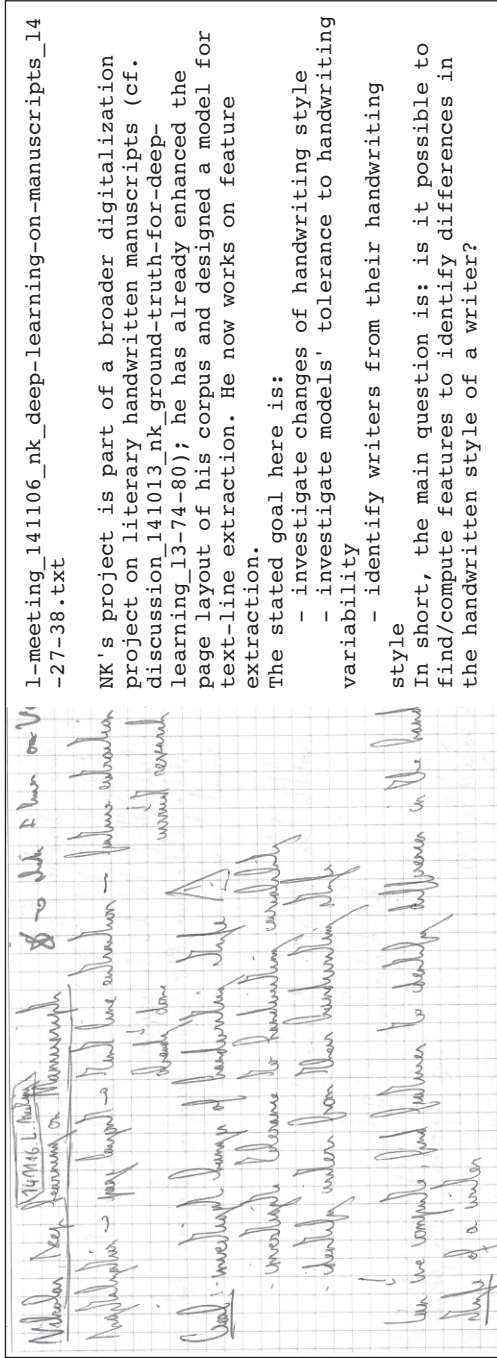 Deep learning on Manuscripts
Digitalization → page layout → text line extraction → feature extraction
already done current research
Goal: - investigate changes of handwriting style
- investigate tolerance to handwriting variability
- identify writers from their handwriting style
Can we compute, find features to identify differences in the hand
style of a writer
l-meeting_141106_nk_deep-learning-on-manuscripts_14
-27-38.txt
NK's project is part of a broader digitalization
project on literary handwritten manuscripts (cf.
discussion_141013_nk_ground-truth-for-deep-
learning_13-74-80); he has already enhanced the
page layout of his corpus and designed a model for
text-line extraction. He now works on feature
extraction.
The stated goal here is:
- investigate changes of handwriting style
- investigate models' tolerance to handwriting
variability
- identify writers from their handwriting
style
In short, the main question is: is it possible to
find/compute features to identify differences in
the handwritten style of a writer?